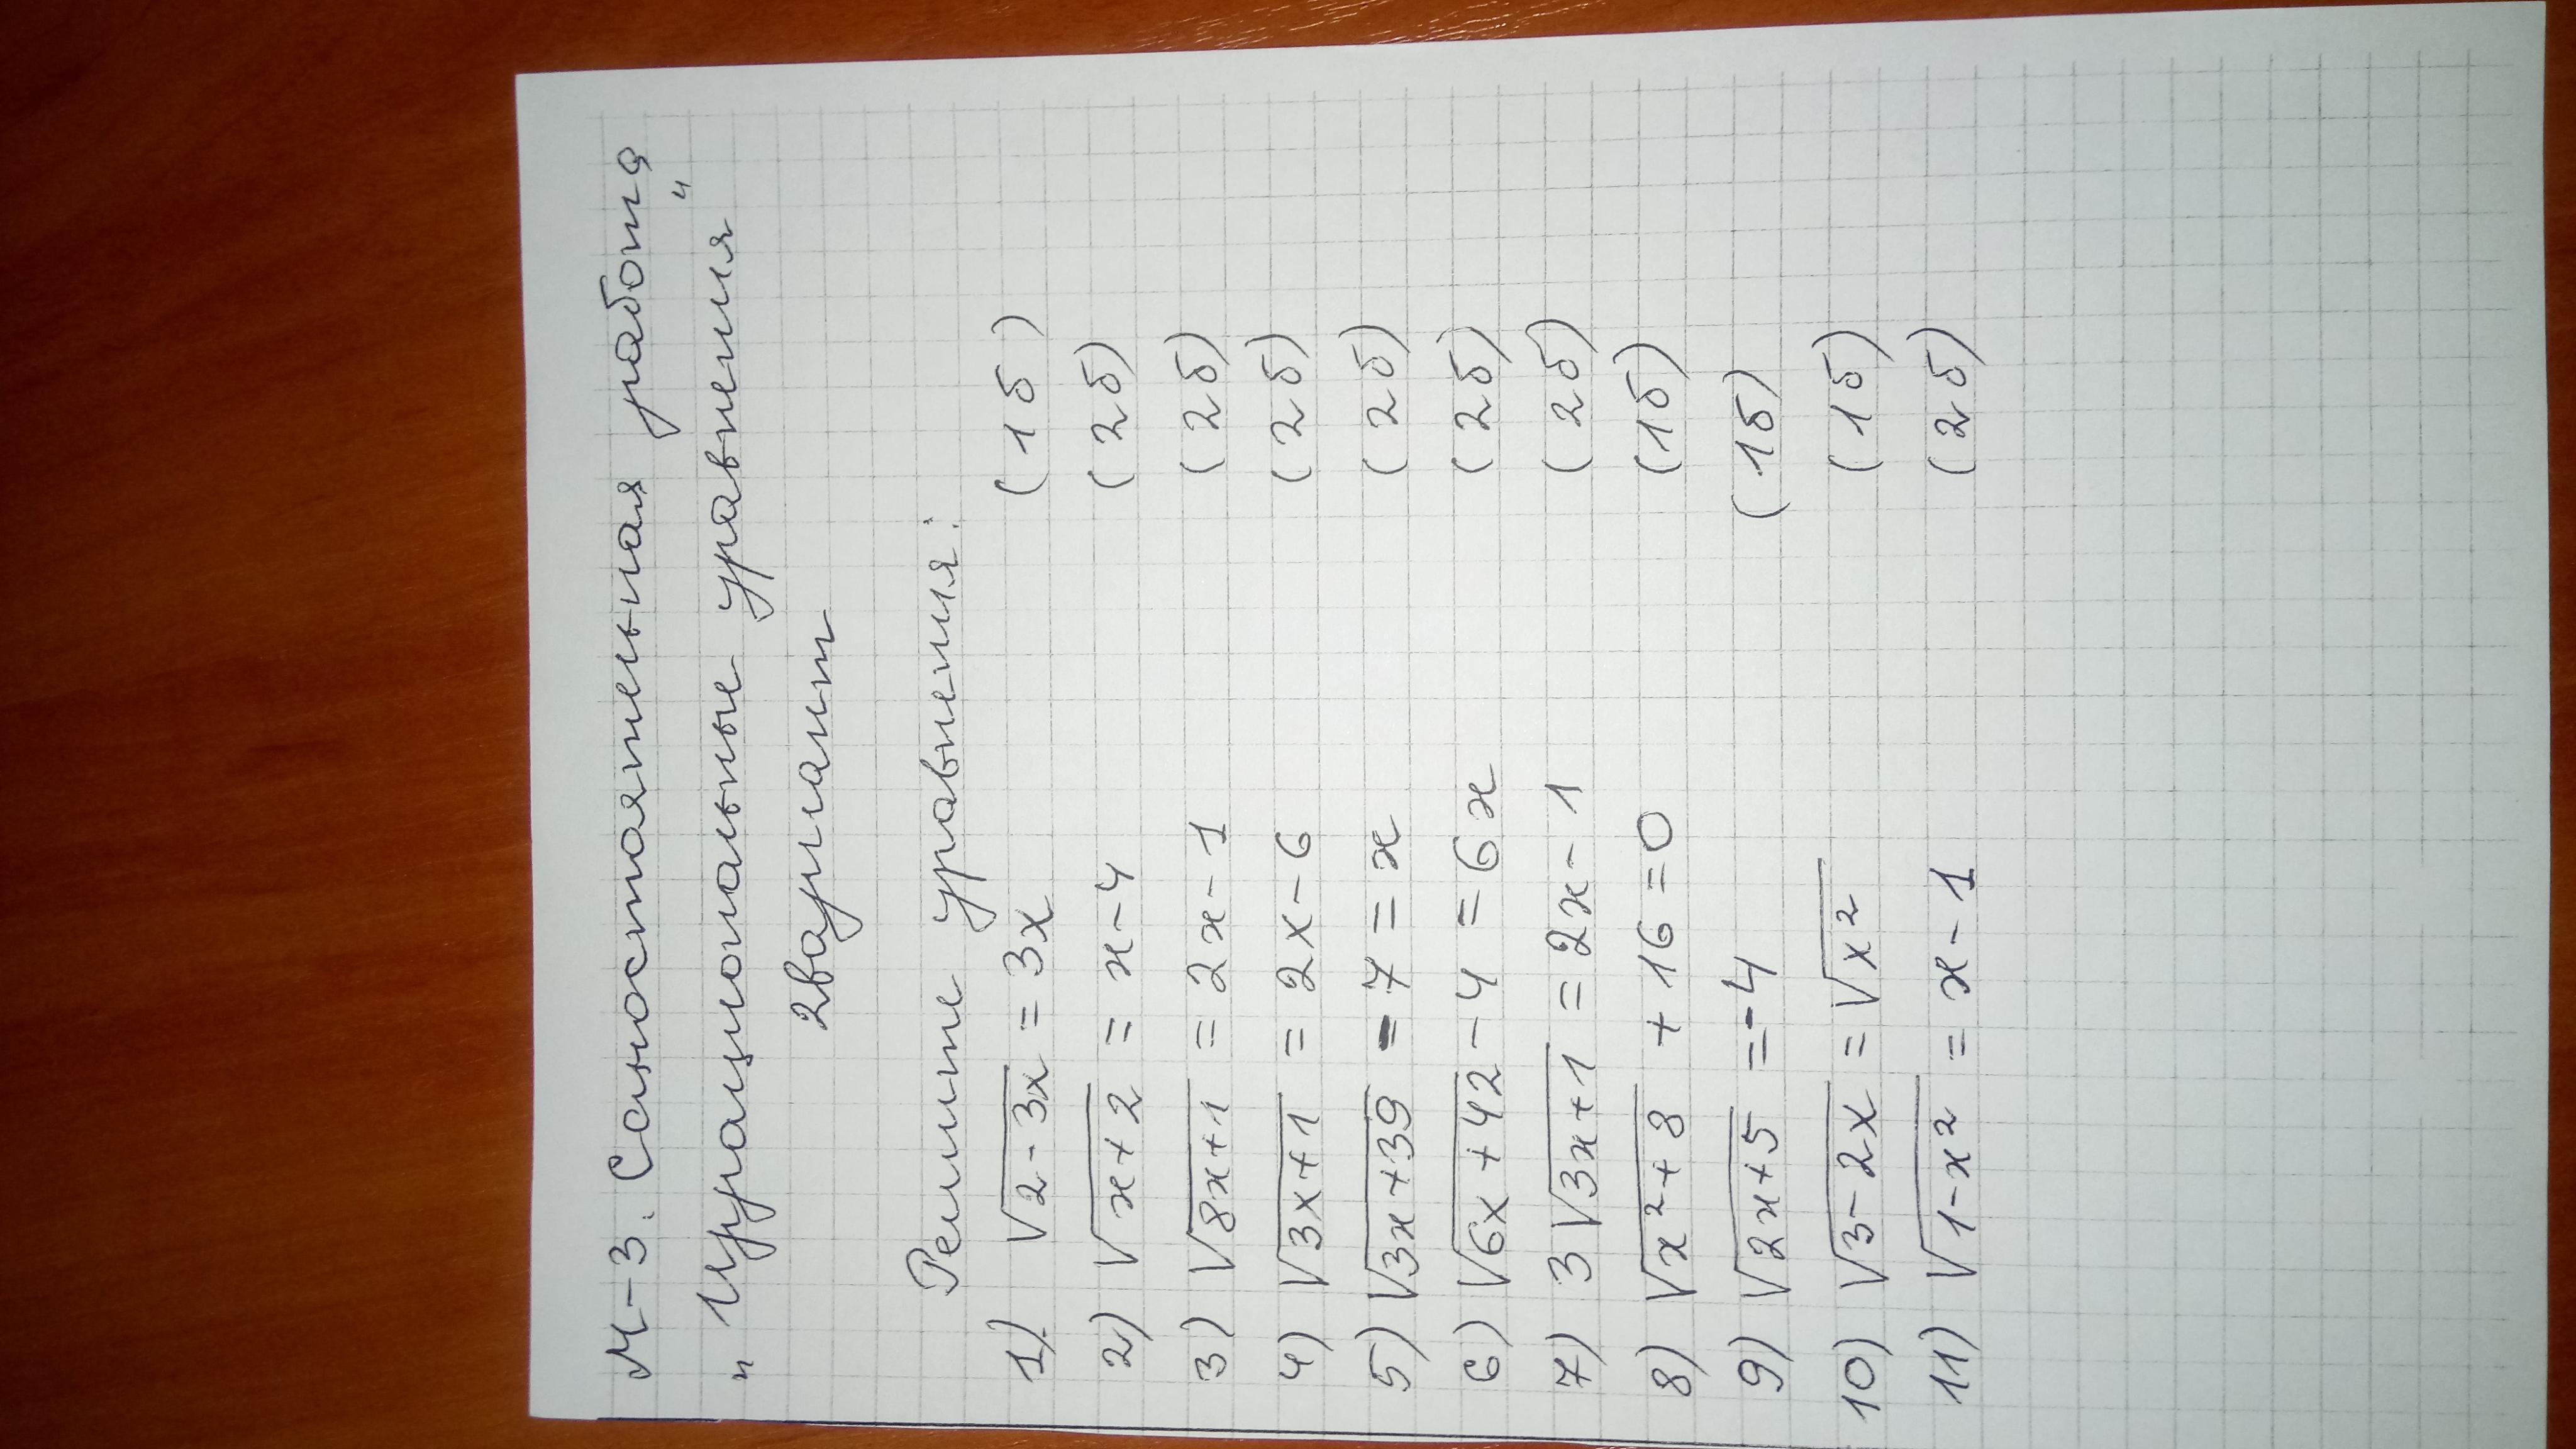 М-3. Самостоятельная работа
"Иррациональные уравнения"
2вариант
Решите уравнения:
1) √(2-3x) = 3x (1б)
2) √(x+2) = x-4 (2б)
3) √(8x+1) = 2x-1 (2б)
4) √(3x+1) = 2x-6 (2б)
5) √(3x+39) -7 = x (2б)
6) √(6x+42) -4 = 6x (2б)
7) 3√(3x+1) = 2x-1 (2б)
8) √(x²+8) +16=0 (1б)
9) √(2x+5) =-4 (1б)
10) √(3-2x) = √(x²) (1б)
11) √(1-x²) = x-1 (2б)